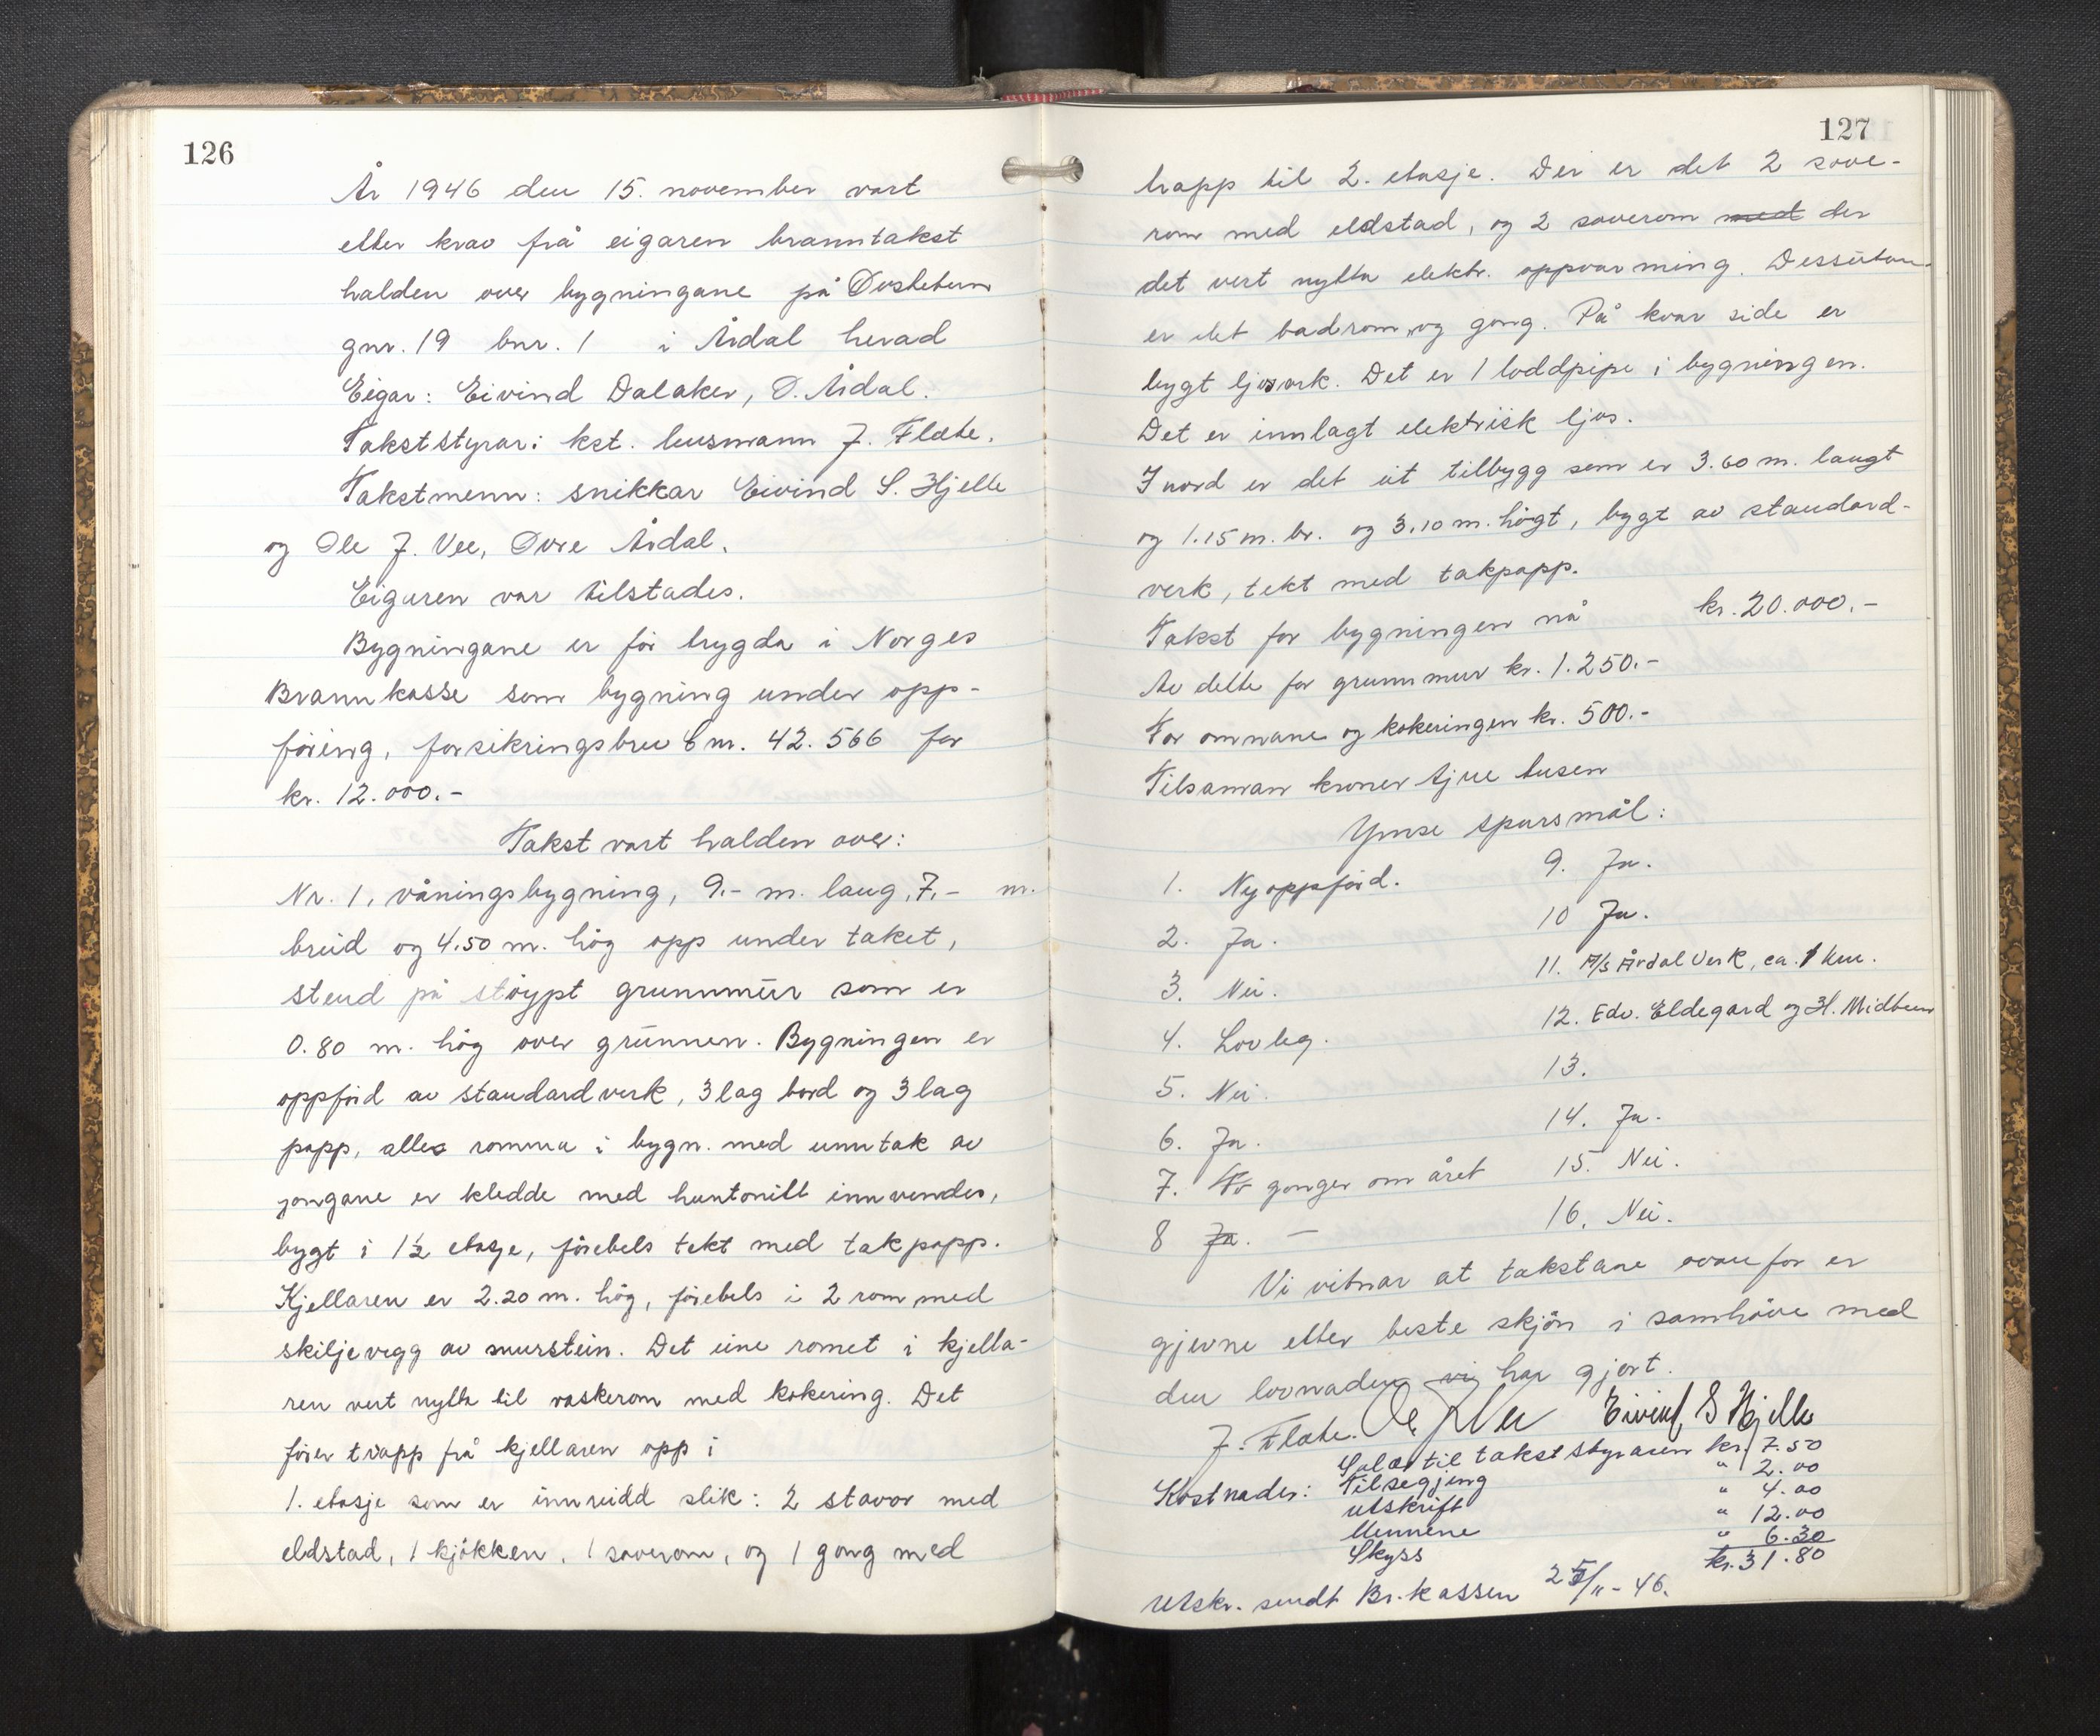 126
År 1946 den 15. november vart
etter krav frå eigaren branntakst
halden over bygningane på
gnr. 19 bnr. 1 i Årdal herad
Eigar: Eivind Dalaker, Ø. Årdal.
Takststyrar: kst. lensmann J. Flæte.
Takstmenn: snikkar Eivind S. Hjelle
og Ole J. Vee, Øvre Årdal.
Eigaren var tilstades.
Bygningane er för trygda i Norges
Brannkasse som bygning under opp-
föring, forsikringsbrev nr. 42.566 for
kr. 12.000.-
Takst vart halden over:
Nr. 1, våningsbygning, 9.- m. lang, 7.- m.
breid og 4.50 m. hög opp under taket,
stend på stöypt grunnmur som er
0.80 m. hög over grunnen. Bygningen er
oppförd av standardverk, 3 lag bord og 3 lag
papp, alle romma i bygn. med unntak av
gongane er kledde med huntonitt innvendes,
bygt i 1½ etasje, förebels tekt med takpapp.
Kjellaren er 2.20 m. hög, förebels i 2 rom med
skiljevegg av murstein. Det eine romet i kjella-
ren vert nytta til vaskerom med kokering. Det
förer trapp frå kjellaren opp i
1. etasje som er innreidd slik: 2 stovor med
eldstad, 1 kjökken, 1 soverom, og 1 gong med
127
trapp til 2. etasje. Der er det 2 sove-
rom med eldstad, og 2 soverom med der
det vert nytta elektr. oppvarming. Dessutan
er det badrom, og gong. På kvar side er
bygt ljosark. Det er 1 loddpipe i bygningen.
Det er innlagt elektrisk ljos.
I nord er det eit tilbygg som er 3.60 m. langt
og 1.15 m. br. og 3.10 m. högt, bygt av standard-
verk, tekt med takpapp.
Takst for bygningen nå kr. 20.000.-
Av dette for grunnmur kr. 1.250.-
For omnane og kokeringen kr. 500.-
Tilsaman kroner tjue tusen
Ymse spursmål:
1. Nyoppförd.
2. Ja.
3. Nei.
4. Lovleg.
5. Nei.
6. Ja.
7. To gonger om året
8 Ja. -
9. Ja.
10 Ja.
11. A/S Årdal Verk, ca. 1 km.
12. Edv. Eldegard og H. Midtun
13.
14. Ja.
15. Nei.
16. Nei.
Vi vitnar at takstane ovanfor er
gjevne etter beste skjön i samhöve med
den lovnaden vi har gjort.
J. Flæte. Ole J Vee Eivind S Hjelle
Kostnader: Salær til takststyraren kr. 7.50
Tilsegjing " 2.00
Utskrift " 4.00
Mennene " 12.00
Skyss " 6.30
kr. 31.80
Utskr. sendt Br.kassen 25/11-46.